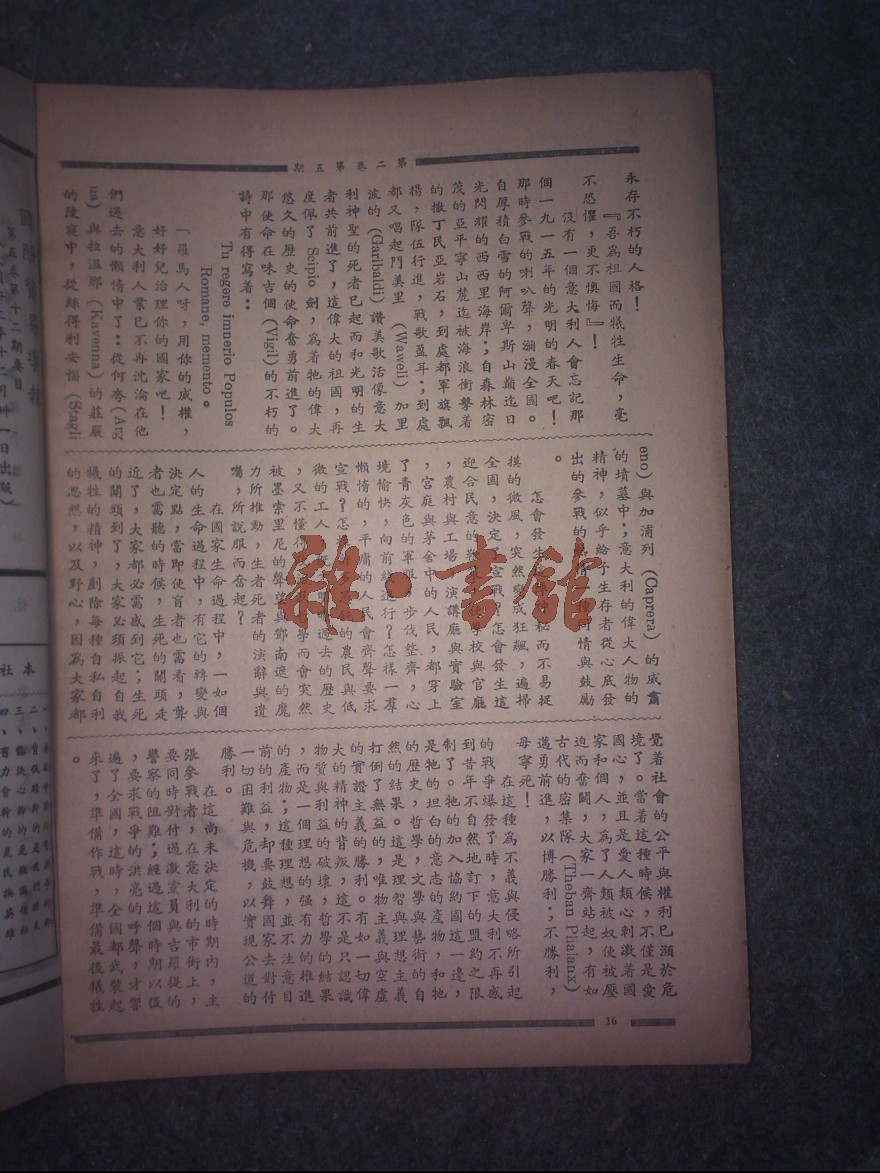 第二卷第五期
永存不朽的人格!
『吾為祖國而犧牲生命,毫
不恐懼,更不懊悔』!
沒有一個意大利人會忘記那
個一九一五年的光明的春天吧!
那時參戰的喇叭聲,瀰漫全國。
自厚積白雪的阿爾卑斯山巔迄日
光閃耀的西西里海岸;自森林密
茂的亞平寧山麓迄被海浪衝擊着
的撒丁民亞岩石,到處都軍旗飄
揚,隊伍行進,戰歌盈耳;到處
都又唱起門美里 (Waweli) 加里
波的 (Garibaldi) 讚美歌活像意大
利神聖的死者已起而和光明的生
者共前進了,這偉大的祖國,再
度佩了 Scipio 劍,為着牠的偉大
悠久的歷史的使命奮勇前進了。
那使命在味吉個 (Vigil) 的不朽的
詩中有得寫着:
Tu regere imnerio Populos
Romane, memento。
「羅馬人呀,用你的威權,
好好兒治理你的國家吧!
意大利人業已不再沈淪在他
們過去的懶惰中了:從何奇 (Arg
ua) 與拉溫那 (Kavenna) 的莊嚴
的陵寢中,從絲得利安惱 (Stagli
eno) 與加浦列 (Caprera) 的威肅
的墳墓中;意大利的偉大人物的
精神,似乎給予生存者從心底發
出的參戰的熱情一種同情與鼓勵
。
怎會發生這神秘而不易捉
摸的微風,突然變成狂飆,遍掃
全國,決定了宣戰?怎會發生這
迎合民意的 學校與官廳
,農村與工場 演講廳與實驗室
,宮庭與茅舍中的人民,都穿上
了青灰色的軍服 步伐整齊,心
境愉快,向前綫進行?怎樣一羣
懶惰的,平庸的人民會齊聲要求
宣戰?怎 的農民與低
微的工人 過去的歷史
,又不懂得 學而會突然
被墨索里尼的聲望與鄧南遮的魔
力所推動,生者死者的演辭與遺
囑,所說服而奮起?
在國家生命過程中,一如個
人的生命過程中,有它的轉變與
決定點,當即使盲者也需看,聾
者也需聽的時候,生死的關頭走
近了,大家都必需感到它;生死
的關頭到了,大家必須振起自我
犧牲的精神,剷除每種自私自利
的思想,以及野心,因為大家都
覺着社會的公平與權利已瀕於危
境了。當着這種時候,不僅是愛
國心,並且是愛人類心刺激着國
家和個人,為了人類被奴使被壓
迫而奮鬬,大家一齊站起,有如
古代的密集隊 (Theban Phalanx)
邁勇前進,以博勝利;不勝利,
毋寧死!
在這種為不義與侵略所引起
的戰爭爆發了時,意大利不再感
到昔年不自然地訂下的盟約之限
制了。牠的加入協約國這一邊,
是牠的坦白的意志的產物,和牠
的歷史,哲學,文學與藝術的自
然的結果。這是理智與理想主義
打倒了無益的,唯物主義與空虛
的實證主義的勝利。有如一切偉
大的精神的背叛,這不是只認識
物質與利益的破壞,哲學的結果
,而是一個理想的强有力的推進
的產物;這種理想,並不注意目
前的利益,却要鼓舞國家去對付
一切困難與危機,以實現公道的
勝利。
在這尚未決定的時期內,主
張參戰者,在意大利的市街上,
要同時對付過激黨員與吉羅提的
警察的阻難;經過這個時期以後
,要求戰爭的洪亮的呼聲,才響
遍了全國,這時,全國都武裝起
來了,準備作戰,準備最後犧牲
。
16
雜·書館
第五卷第十二期要目
本社